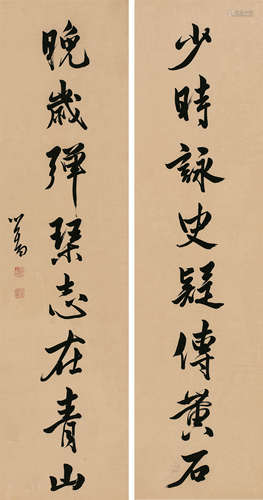 少時詠史疑傳黃石
晚歲彈琴志在青山
心畬